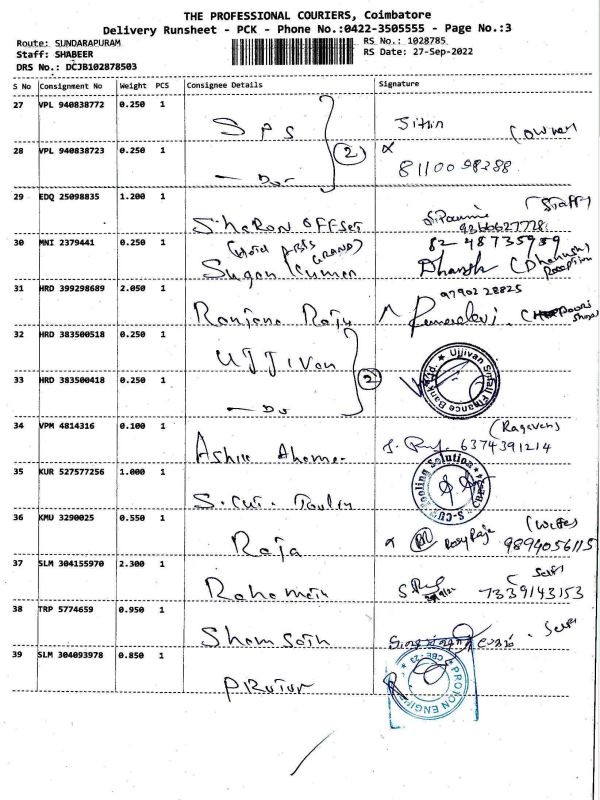 THE PROFESSIONAL COURIERS, Coimbatore
Delivery Runsheet - PCK - Phone No.:0422-3505555 - Page No.:3
Route: SUNDARAPURAM
RS No.: 1028785
Staff: SHABEER
RS Date: 27-Sep-2022
DRS No.: DCJB102878503
S No Consignment No Weight PCS Consignee Details Signature
27 VPL 940838772 0.250 1
SPS Jithin (owner)
28 VPL 940838723 0.250 1
(2)
— Do —
29 EDQ 25098835 1.200 1
(Staff)
Sharon OFFset
30 MNI 2379441 0.250 1
(Hotel GRAND)
82 48735939
Sugan Kumar Dhanush (Dhanush) Reception
31 HRD 399298689 2.050 1
9790228825
Ranjana Raju
32 HRD 383500518 0.250 1
UJJivan
Ujjivan Small Finance Bank Ltd.
33 HRD 383500418 0.250 1
(2)
— Do
34 VPM 4814316 0.100 1
(Ragavan)
6374391214
35 KUR 527577256 1.000 1
S-CUT Tooling Solution
S. CUT.
36 KMU 3290025 0.550 1
(Wife)
Raja RosyRaja 9894056115
37 SLM 304155970 2.300 1
(Self)
7339143153
38 TRP 5774659 0.950 1
Self
39 SLM 304093978 0.850 1
CBE-23